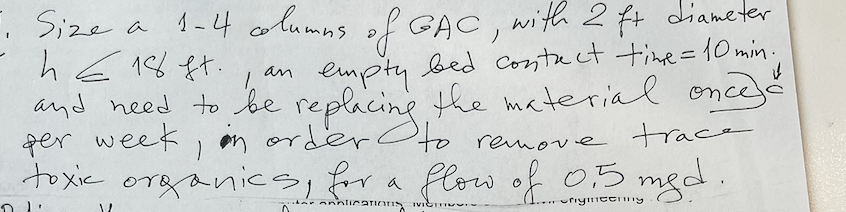 Size a 1-4 columns of GAC, with 2 ft diameter
h ≤ 18 ft., an empty bed contact time = 10 min.
and need to be replacing the material once
per week, in order to remove trace
toxic organics, for a flow of 0.5 mgd.